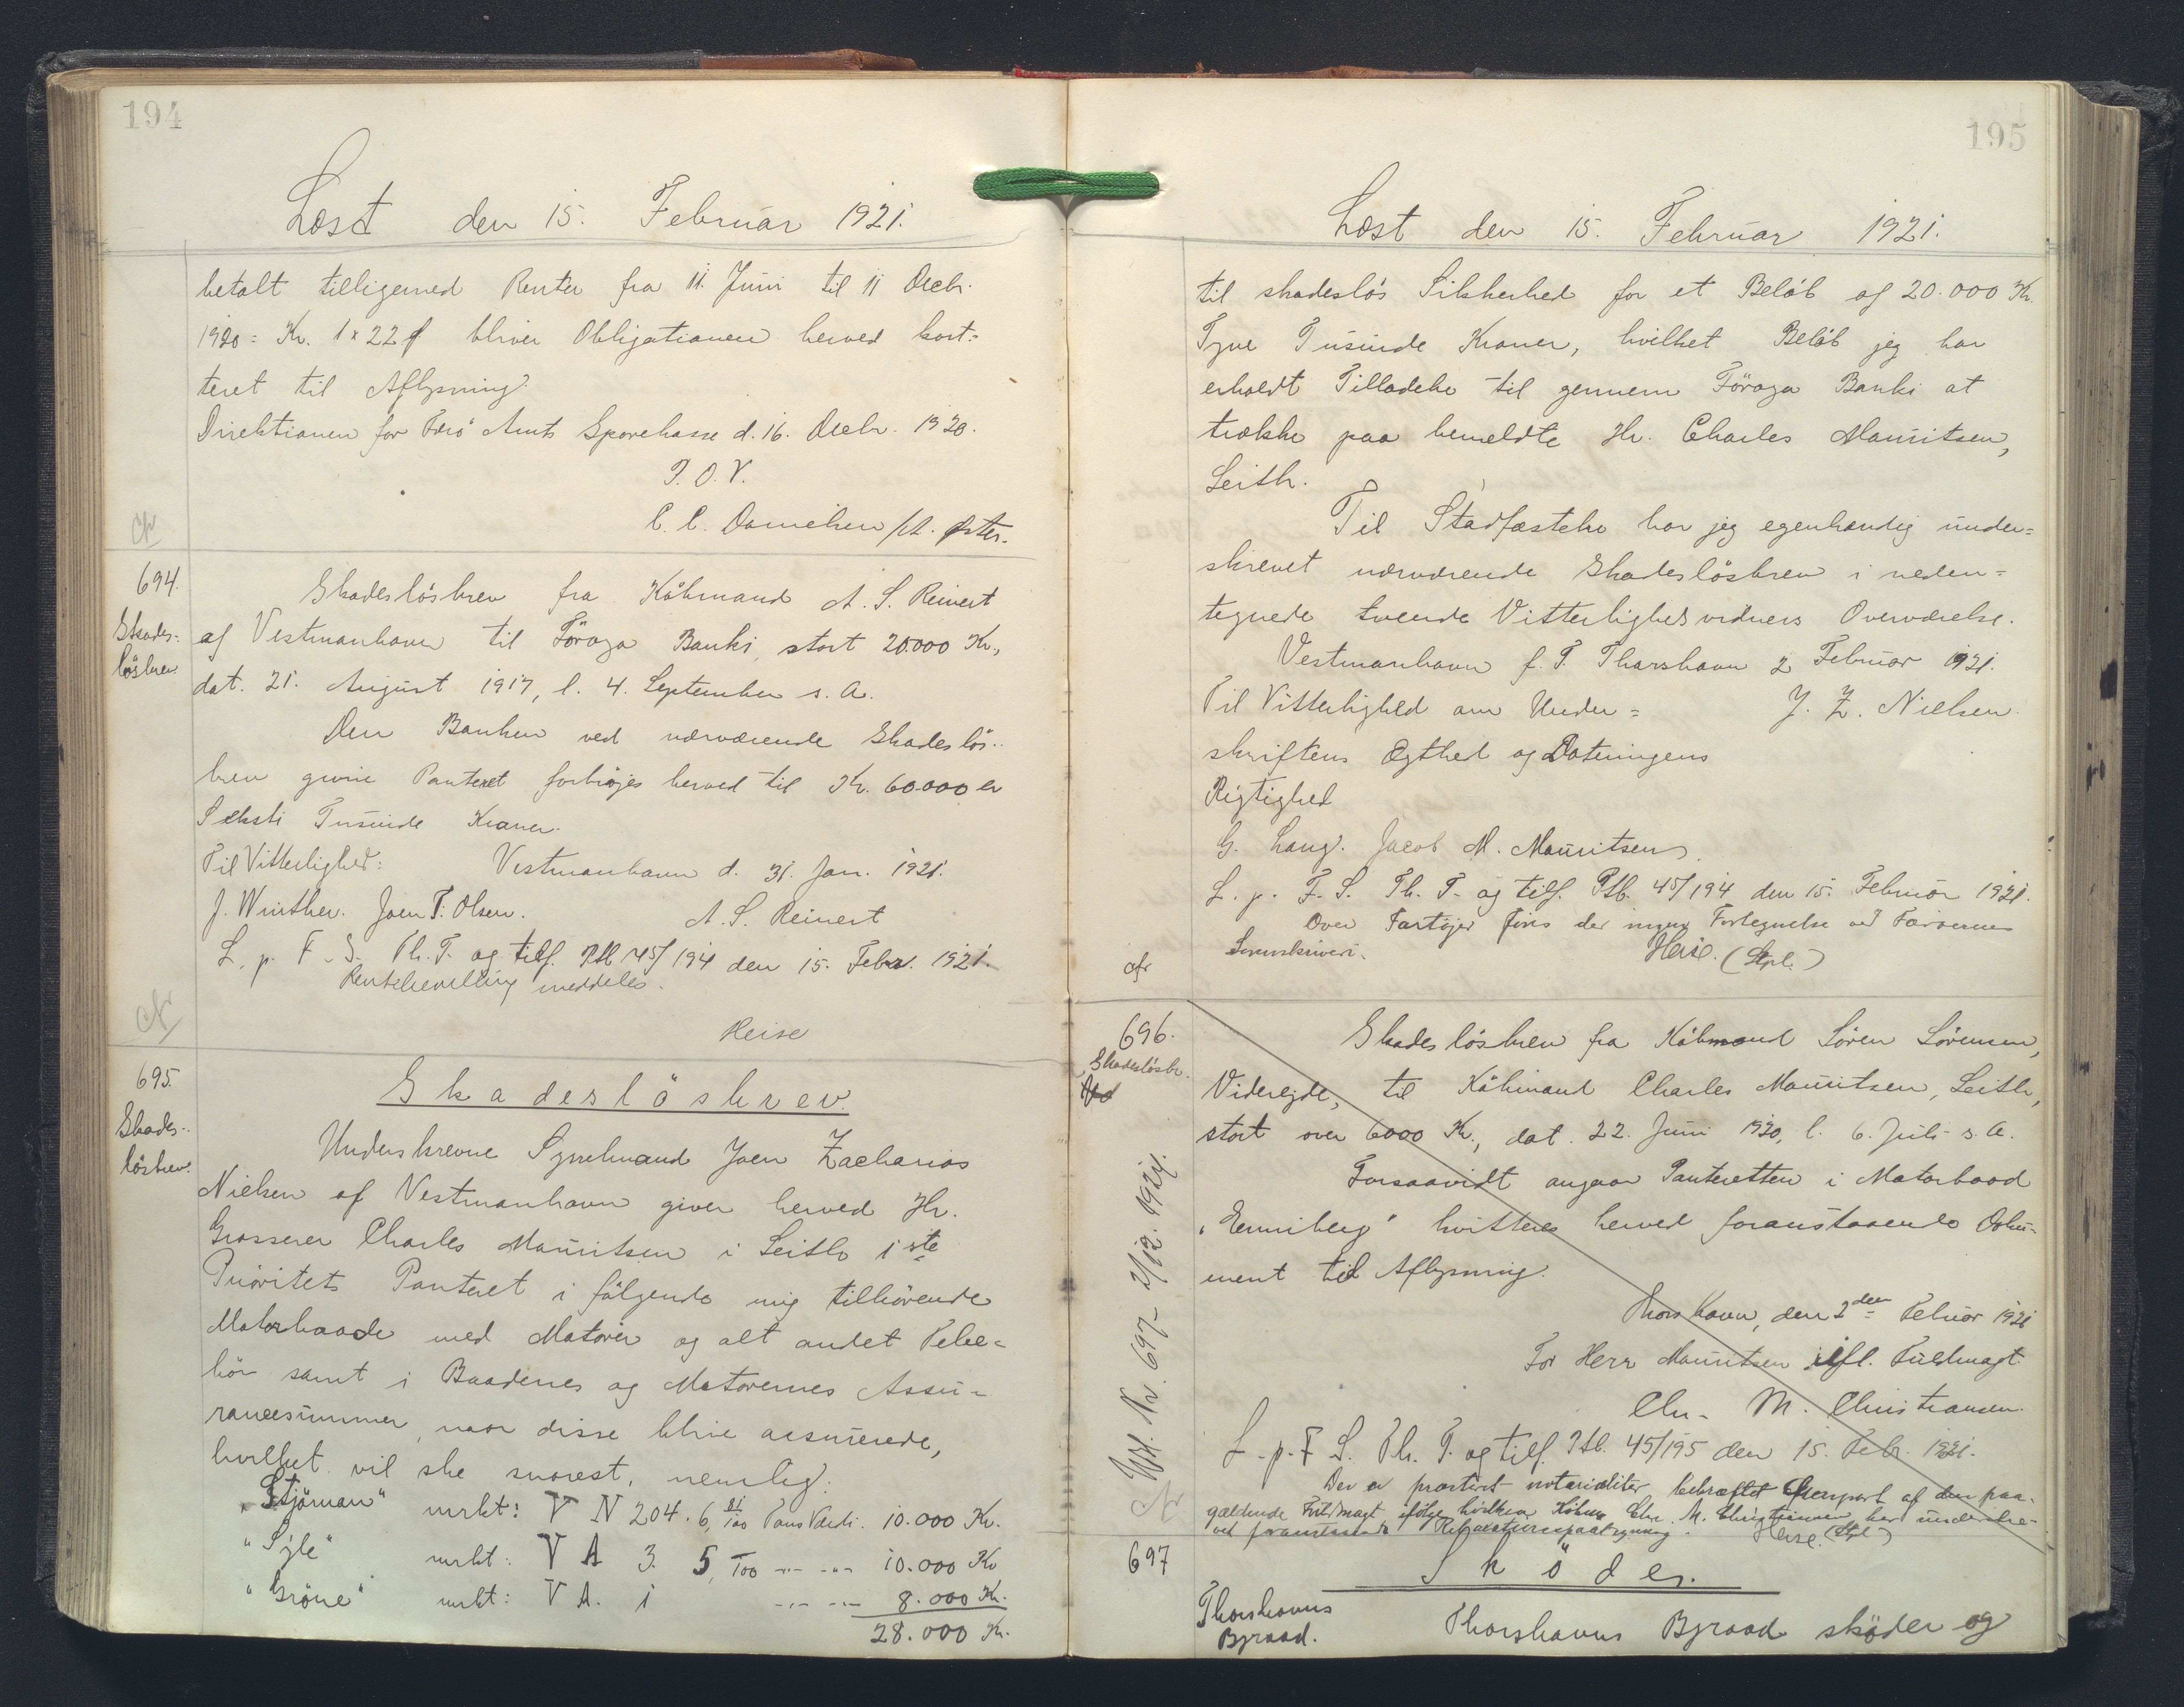 194
Læst den 15. Februar 1921.
betalt tilligemed Renter fra 11. Juni til 11 Decbr.
1920 = Kr. 1 x 22 ℓ bliver Obligationen herved kvit=
teret til Aflysning.
Direktionen for Færø Amts Sparekasse d. 16. Decbr. 1920.
P. O. V.
C. C. Danielsen /A. Øster.
cfr
694.
Skades=
løsbrev.
Skadesløsbrev fra Købmand A. S. Reinert
af Vestmanhavn til Föroya Banki, stort 20.000 Kr.,
dat. 21. August 1917, l. 4. September s. A.
Den Banken ved nærværende Skadesløs=
brev givne Panteret forhøjes herved til Kr. 60.000 er
Seksti Tusinde Kroner.
Til Vitterlighed: Vestmanhavn d. 31. Jan. 1921.
J. Winther. Joen T. Olsen. A. S. Reinert
L. p. F. S. Th. T. og tilf. Ptb. 45/194 den 15. Febr. 1921.
Rentebevilling meddeles.
Heise
cfr
695.
Skades=
løsbrev.
Skadesløsbrev.
Underskrevne Sysselmand Joen Zacharias
Nielsen af Vestmanhavn giver herved Hr.
Grosserer Charles Mauritsen i Leith 1ste
Prioritets Panteret i følgende mig tilhørende
Motorbaade med Motorer og alt andet Tilbe=
hør samt i Baadenes og Motorernes Assu=
rancesummer, naar disse blive assurerede,
hvilket vil ske snarest, nemlig:
"Stjörnan" mrkt: V N 204. 6, 21/100 Tons Værdi. 10.000 Kr.
"Sýle" mrkt: V A 3. 5, /100 -"- -"- 10.000 Kr
"Gróne" mrkt: V A. 1 -"- -"- 8.000 Kr.
28.000 Kr.
195
Læst den 15. Februar 1921.
til skadesløs Sikkerhed for et Beløb af 20.000 Kr.
Tyve Tusinde Kroner, hvilket Beløb jeg har
erholdt Tilladelse til gennem Föroya Banki at
trække paa bemeldte Hr. Charles Mauritsen,
Leith.
Til Stadfæstelse har jeg egenhændig under=
skrevet nærværende Skadesløsbrev i neden=
tegnede tvende Vitterlighedsvidners Overværelse.
Vestmanhavn p. T. Thorshavn 2 Februar 1921.
Til Vitterlighed om Under= J. Z. Nielsen.
skriftens Ægthed og Dateringens
Rigtighed
G. Lang. Jacob M. Mauritsen.
L. p. F. S. Th. T. og tilf. Ptb. 45/194 den 15. Februar 1921.
Over Fartøjer føres der ingen Fortegnelse ved Færøernes
Sorenskriveri. Heise. (Stpl.)
cfr
696.
Skadesløsbr.
Skadesløsbrev fra Købmand Sören Sörensen,
Viderejde, til Købmand Charles Mauritsen, Leith,
stort over 6000 Kr., dat. 22. Juni 1920, l. 6. Juli s. A.
Forsaavidt angaar Panteretten i Motorbaad
"Enniberg" kvitteres herved foranstaaende Doku=
ment til Aflysning.
Thorshavn, den 2den Februar 1921
For Herr Mauritsen ifl. Fuldmagt
Chr. M. Christiansen.
L. p. F. S. Th. T. og tilf. Ptb. 45/195 den 15. Febr. 1921.
Der er præsteret notarialiter bekræftet Genpart af den paa=
gældende Fuldmagt ifølge hvilken Købm. Chr. M. Christiansen har underskre=
vet foranstaaende Heise. (Stpl)
Nr. 697 - 2/12. 1924.
cfr
697
Thorshavns
Byraad.
Sköde.
Thorshavns Byraad sköder og